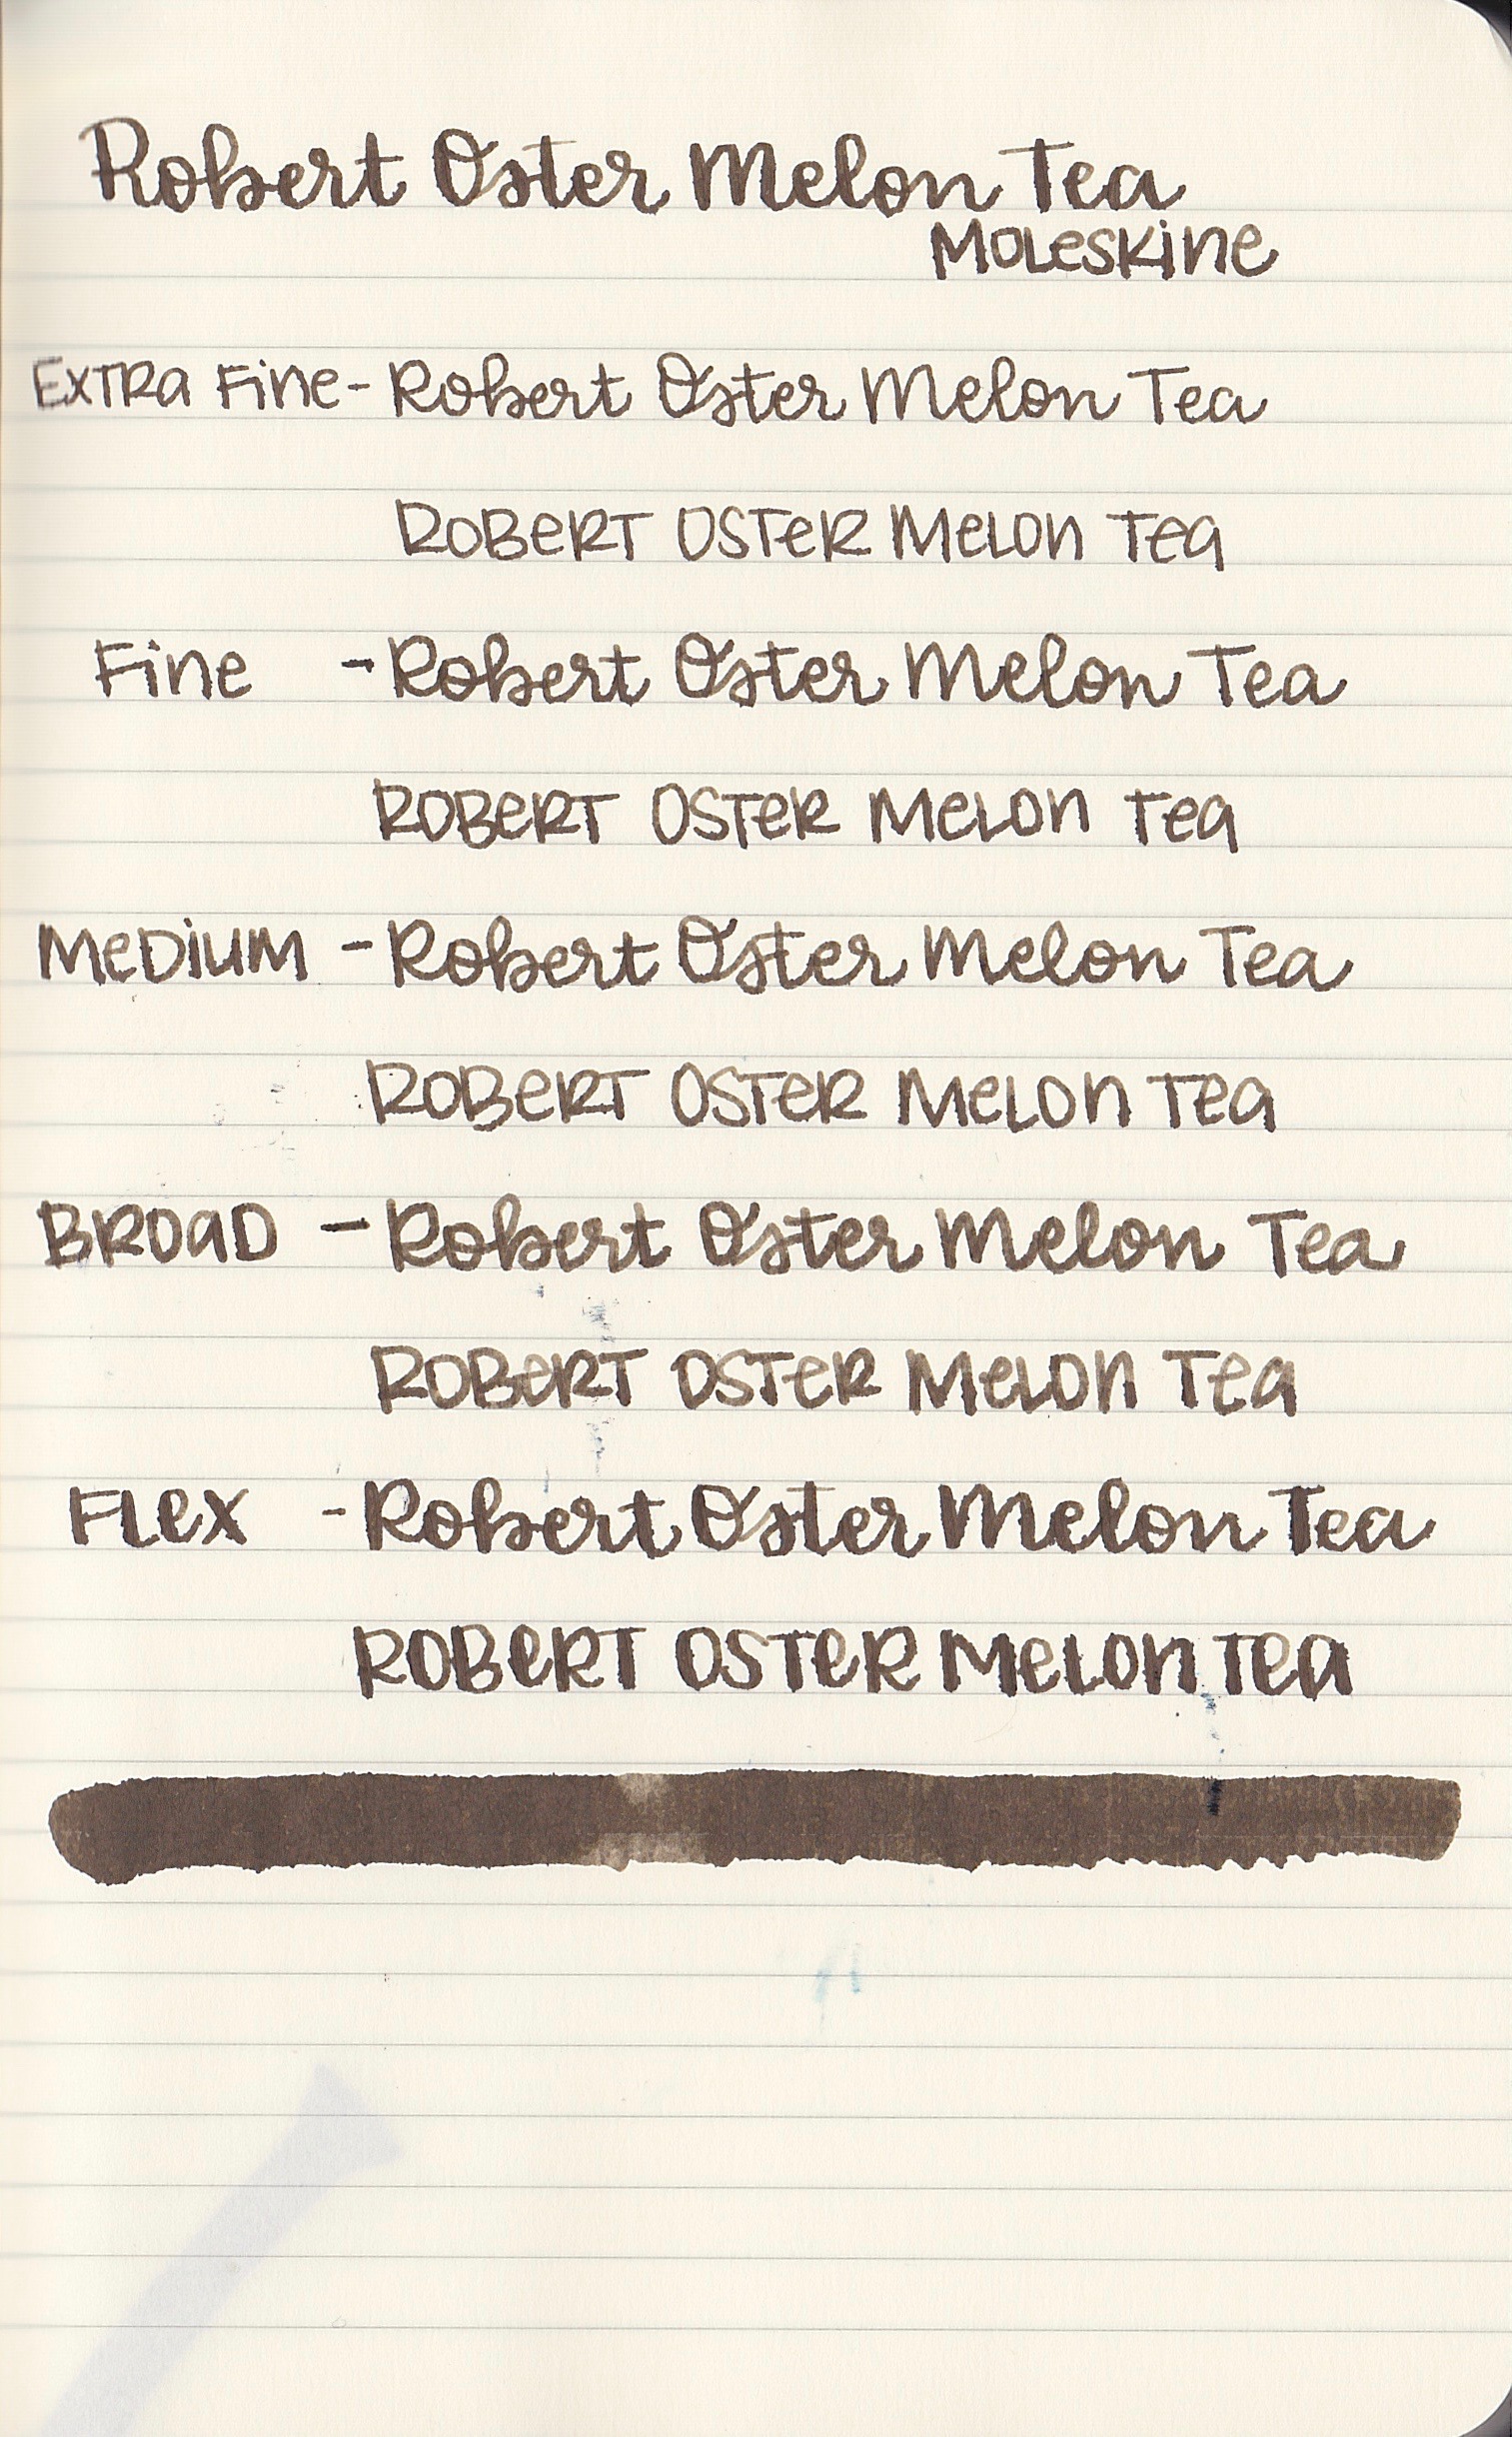 Robert Oster Melon Tea
Moleskine
Extra Fine - Robert Oster Melon Tea
ROBERT OSTER MELON TEA
Fine - Robert Oster Melon Tea
ROBERT OSTER MELON TEA
MEDIUM - Robert Oster Melon Tea
ROBERT OSTER MELON TEA
BROAD - Robert Oster Melon Tea
ROBERT OSTER MELON TEA
FLEX - Robert Oster Melon Tea
ROBERT OSTER MELON TEA